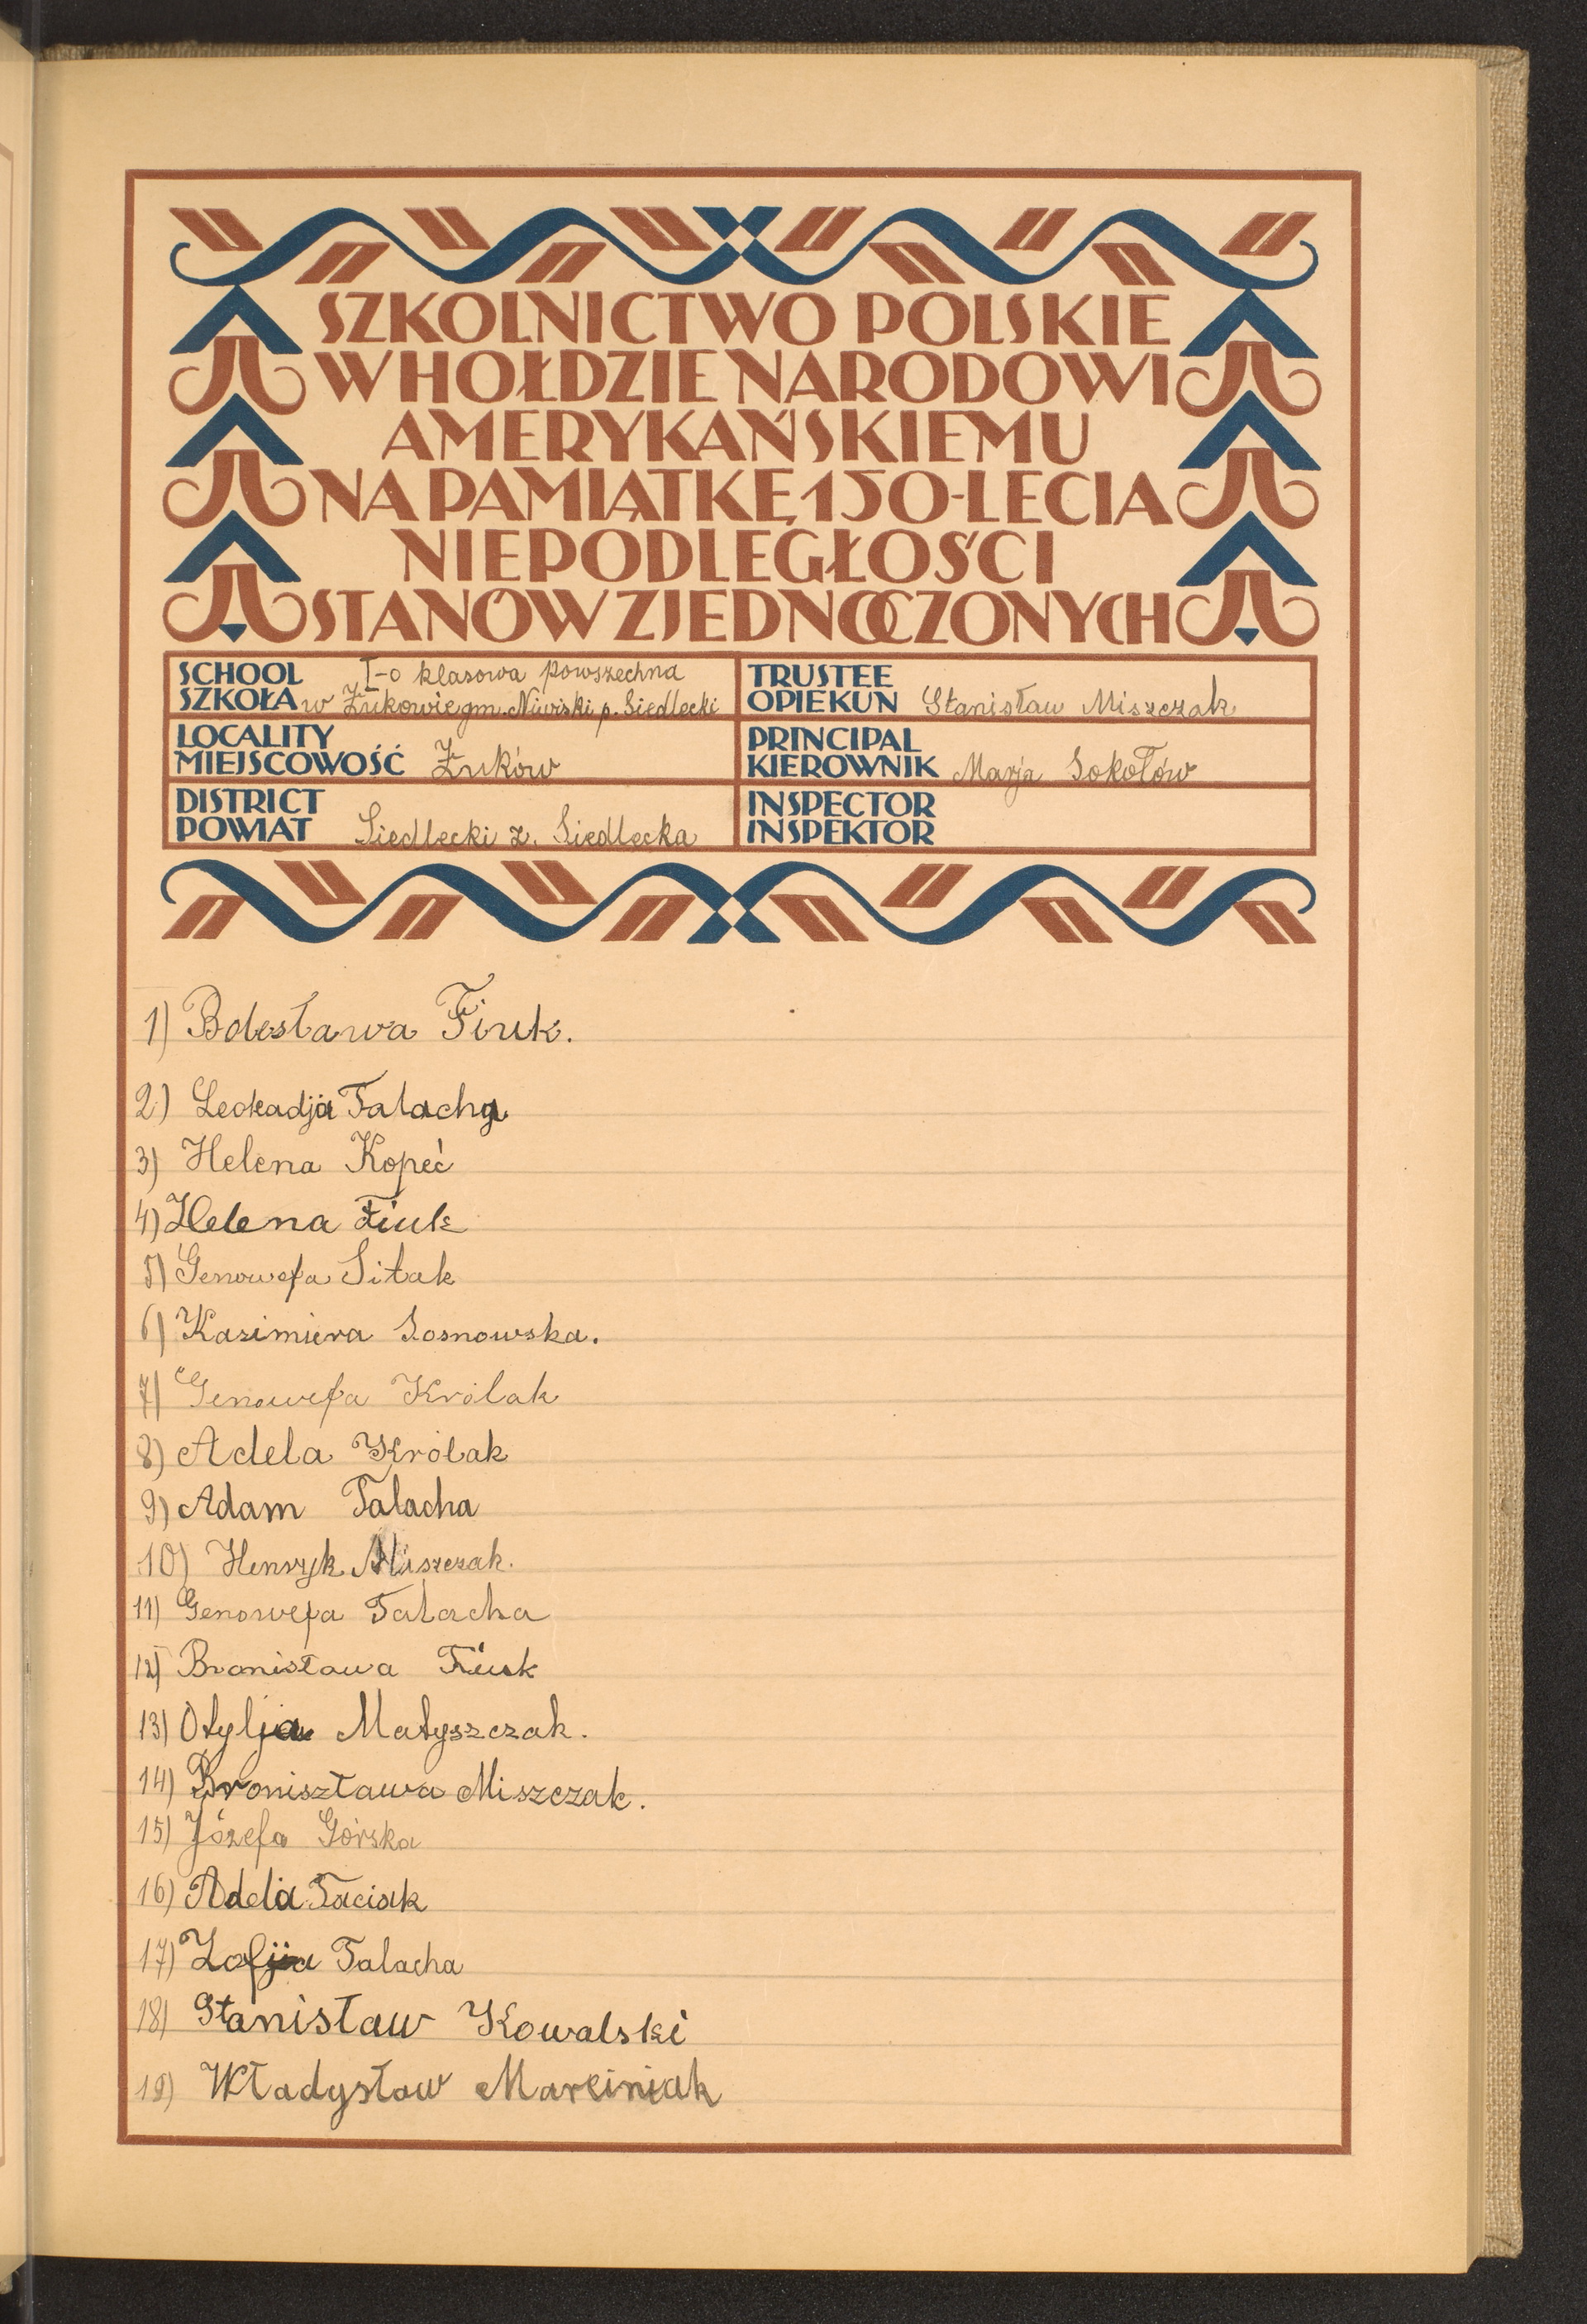 SZKOLNICTWO POLSKIE
W HOŁDZIE NARODOWI
AMERYKAŃSKIEMU
NA PAMIĄTKĘ 150-LECIA
NIEPODLEGŁOŚCI
STANÓW ZJEDNOCZONYCH
SCHOOL I-o klasowa powszechna
SZKOŁA w Żukowie gm. Niwiski p. Siedlecki
TRUSTEE
OPIEKUN Stanisław Miszczak
LOCALITY
MIEJSCOWOŚĆ Żuków
PRINCIPAL
KIEROWNIK Marja Sokołów
DISTRICT
POWIAT Siedlecki z. Siedlecka
INSPECTOR
INSPEKTOR
1) Bolesława Fiuk.
2) Leokadja Talacha
3) Helena Kopeć
4) Helena Fiuk
5) Genowefa Sitak
6) Kazimiera Sosnowska.
7) Genowefa Królak
8) Adela Królak
9) Adam Talacha
10) Henryk Miszczak.
11) Genowefa Talacha
12) Bronisława Fiuk
13) Otylja Matyszczak.
14) Broniszława Miszczak.
15) Józefa Górska
16) Adela Taciak
17) Zofja Talacha
18) Stanisław Kowalski
19) Władysław Marciniak